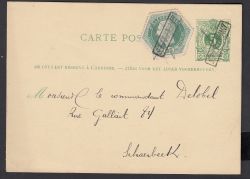 CARTE POS
CE CÔTÉ EST RÉSERVÉ À L'ADRESSE. — ZIJDE VOOR HET ADRES VOORBEHOUDEN.
Monsieur le commandant Delobel
Rue Gallait 84
Schaerbeek